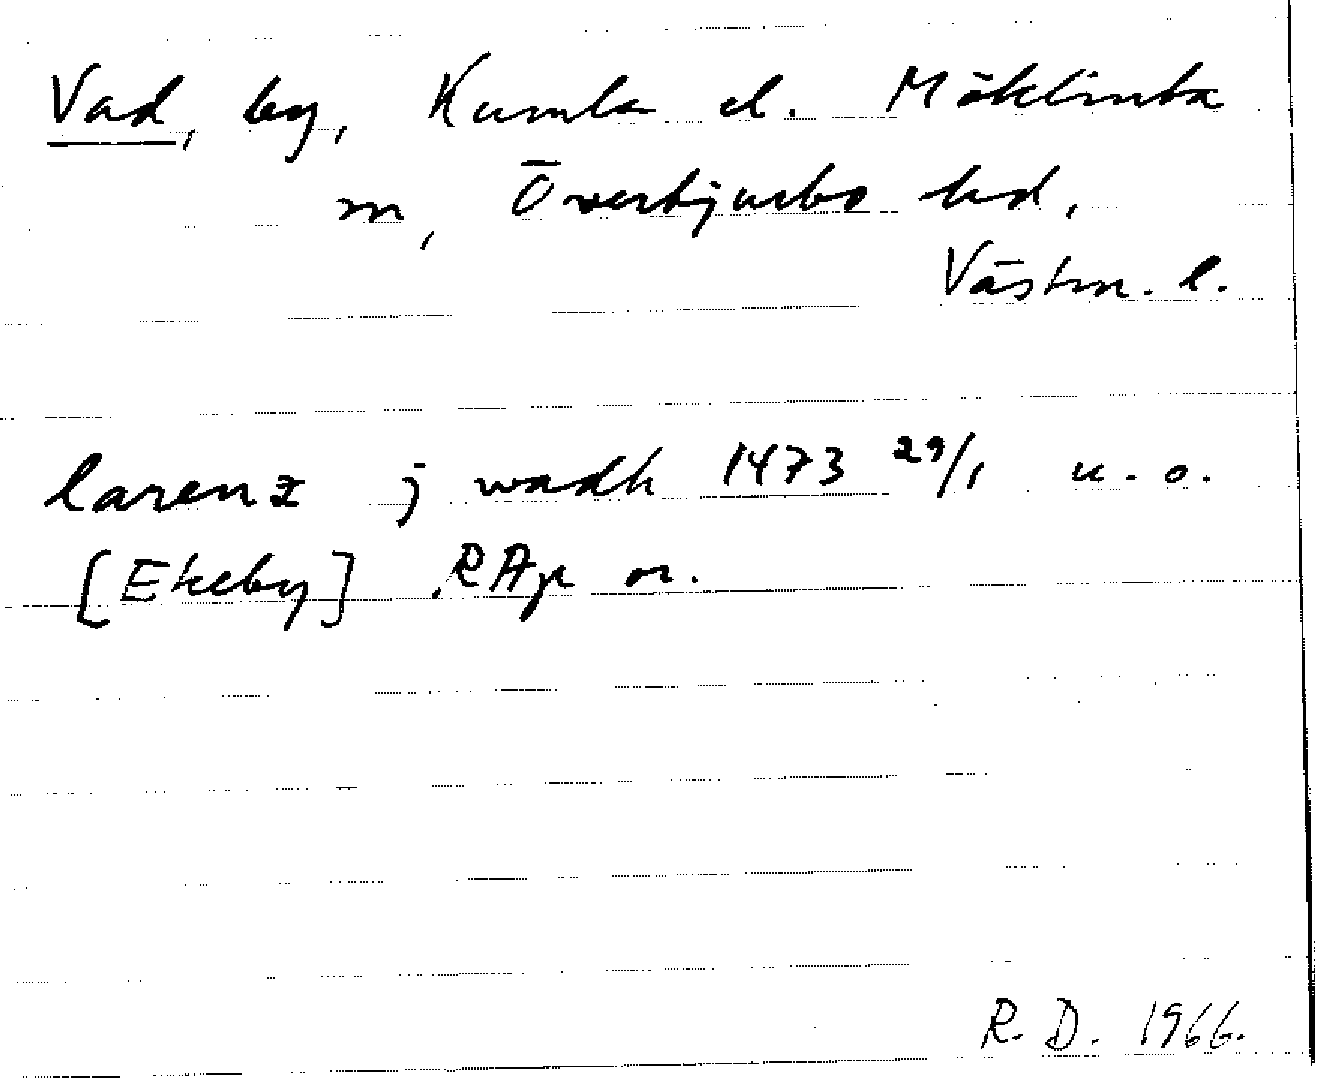 Vad, by, Kumla el. Möklinta
sn, Övertjurbo hd,
Västm. l.
larenz j wadh 1473 29/1 u.o.
[Ekeby] RAp or.
R. D. 1966.